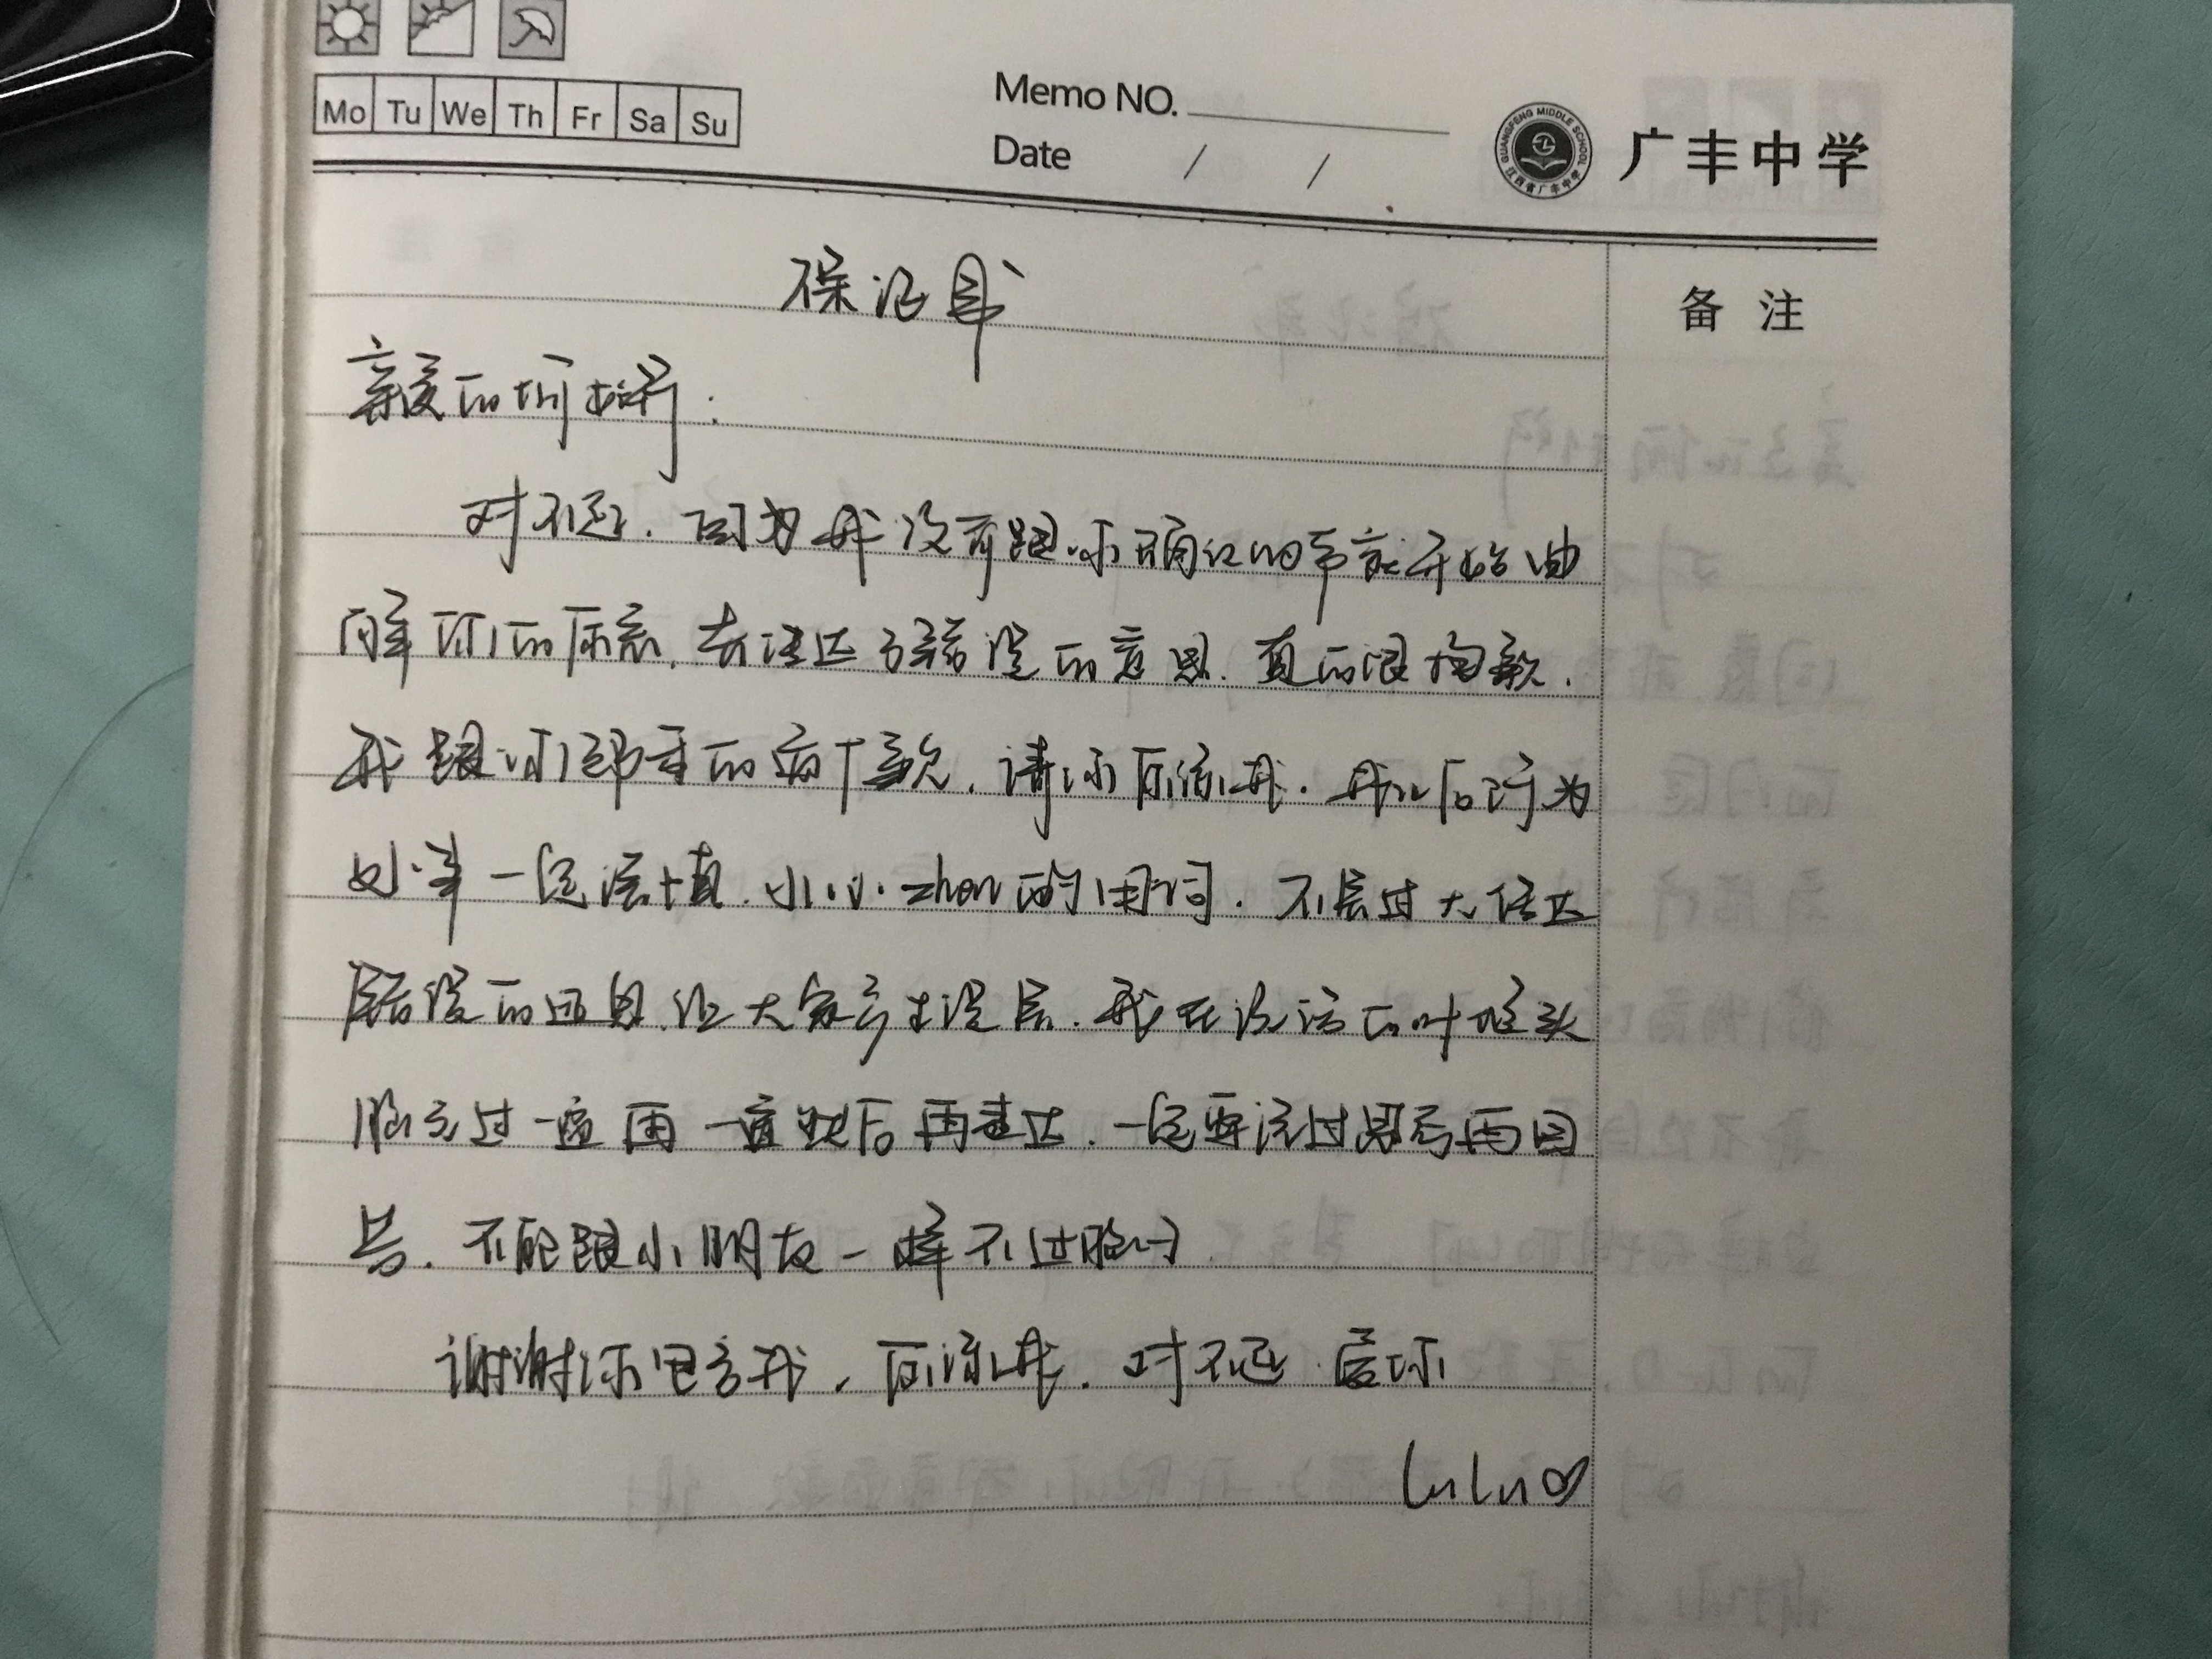 Mo Tu We Th Fr Sa Su
Memo NO.
Date / /
GUANGFENG MIDDLE SCHOOL
江西省广丰中学
广丰中学
备注
保证书
亲爱的
对不起.因为我没有跟你确认的事就开始曲
解你的原意,表达错误的意思.真的很抱歉.
我跟你郑重的道个歉.请你原谅我.我以后行为
处举一定谨慎.小心zhen的用词.不会过大传达
错误的信息.让大家产生误会.我在说话的时候
脑子过一遍再一遍然后再表达.一定要经过思考再回
答.不能跟小朋友一样不过脑子.
谢谢你包容我,原谅我.对不起 爱你
lulu